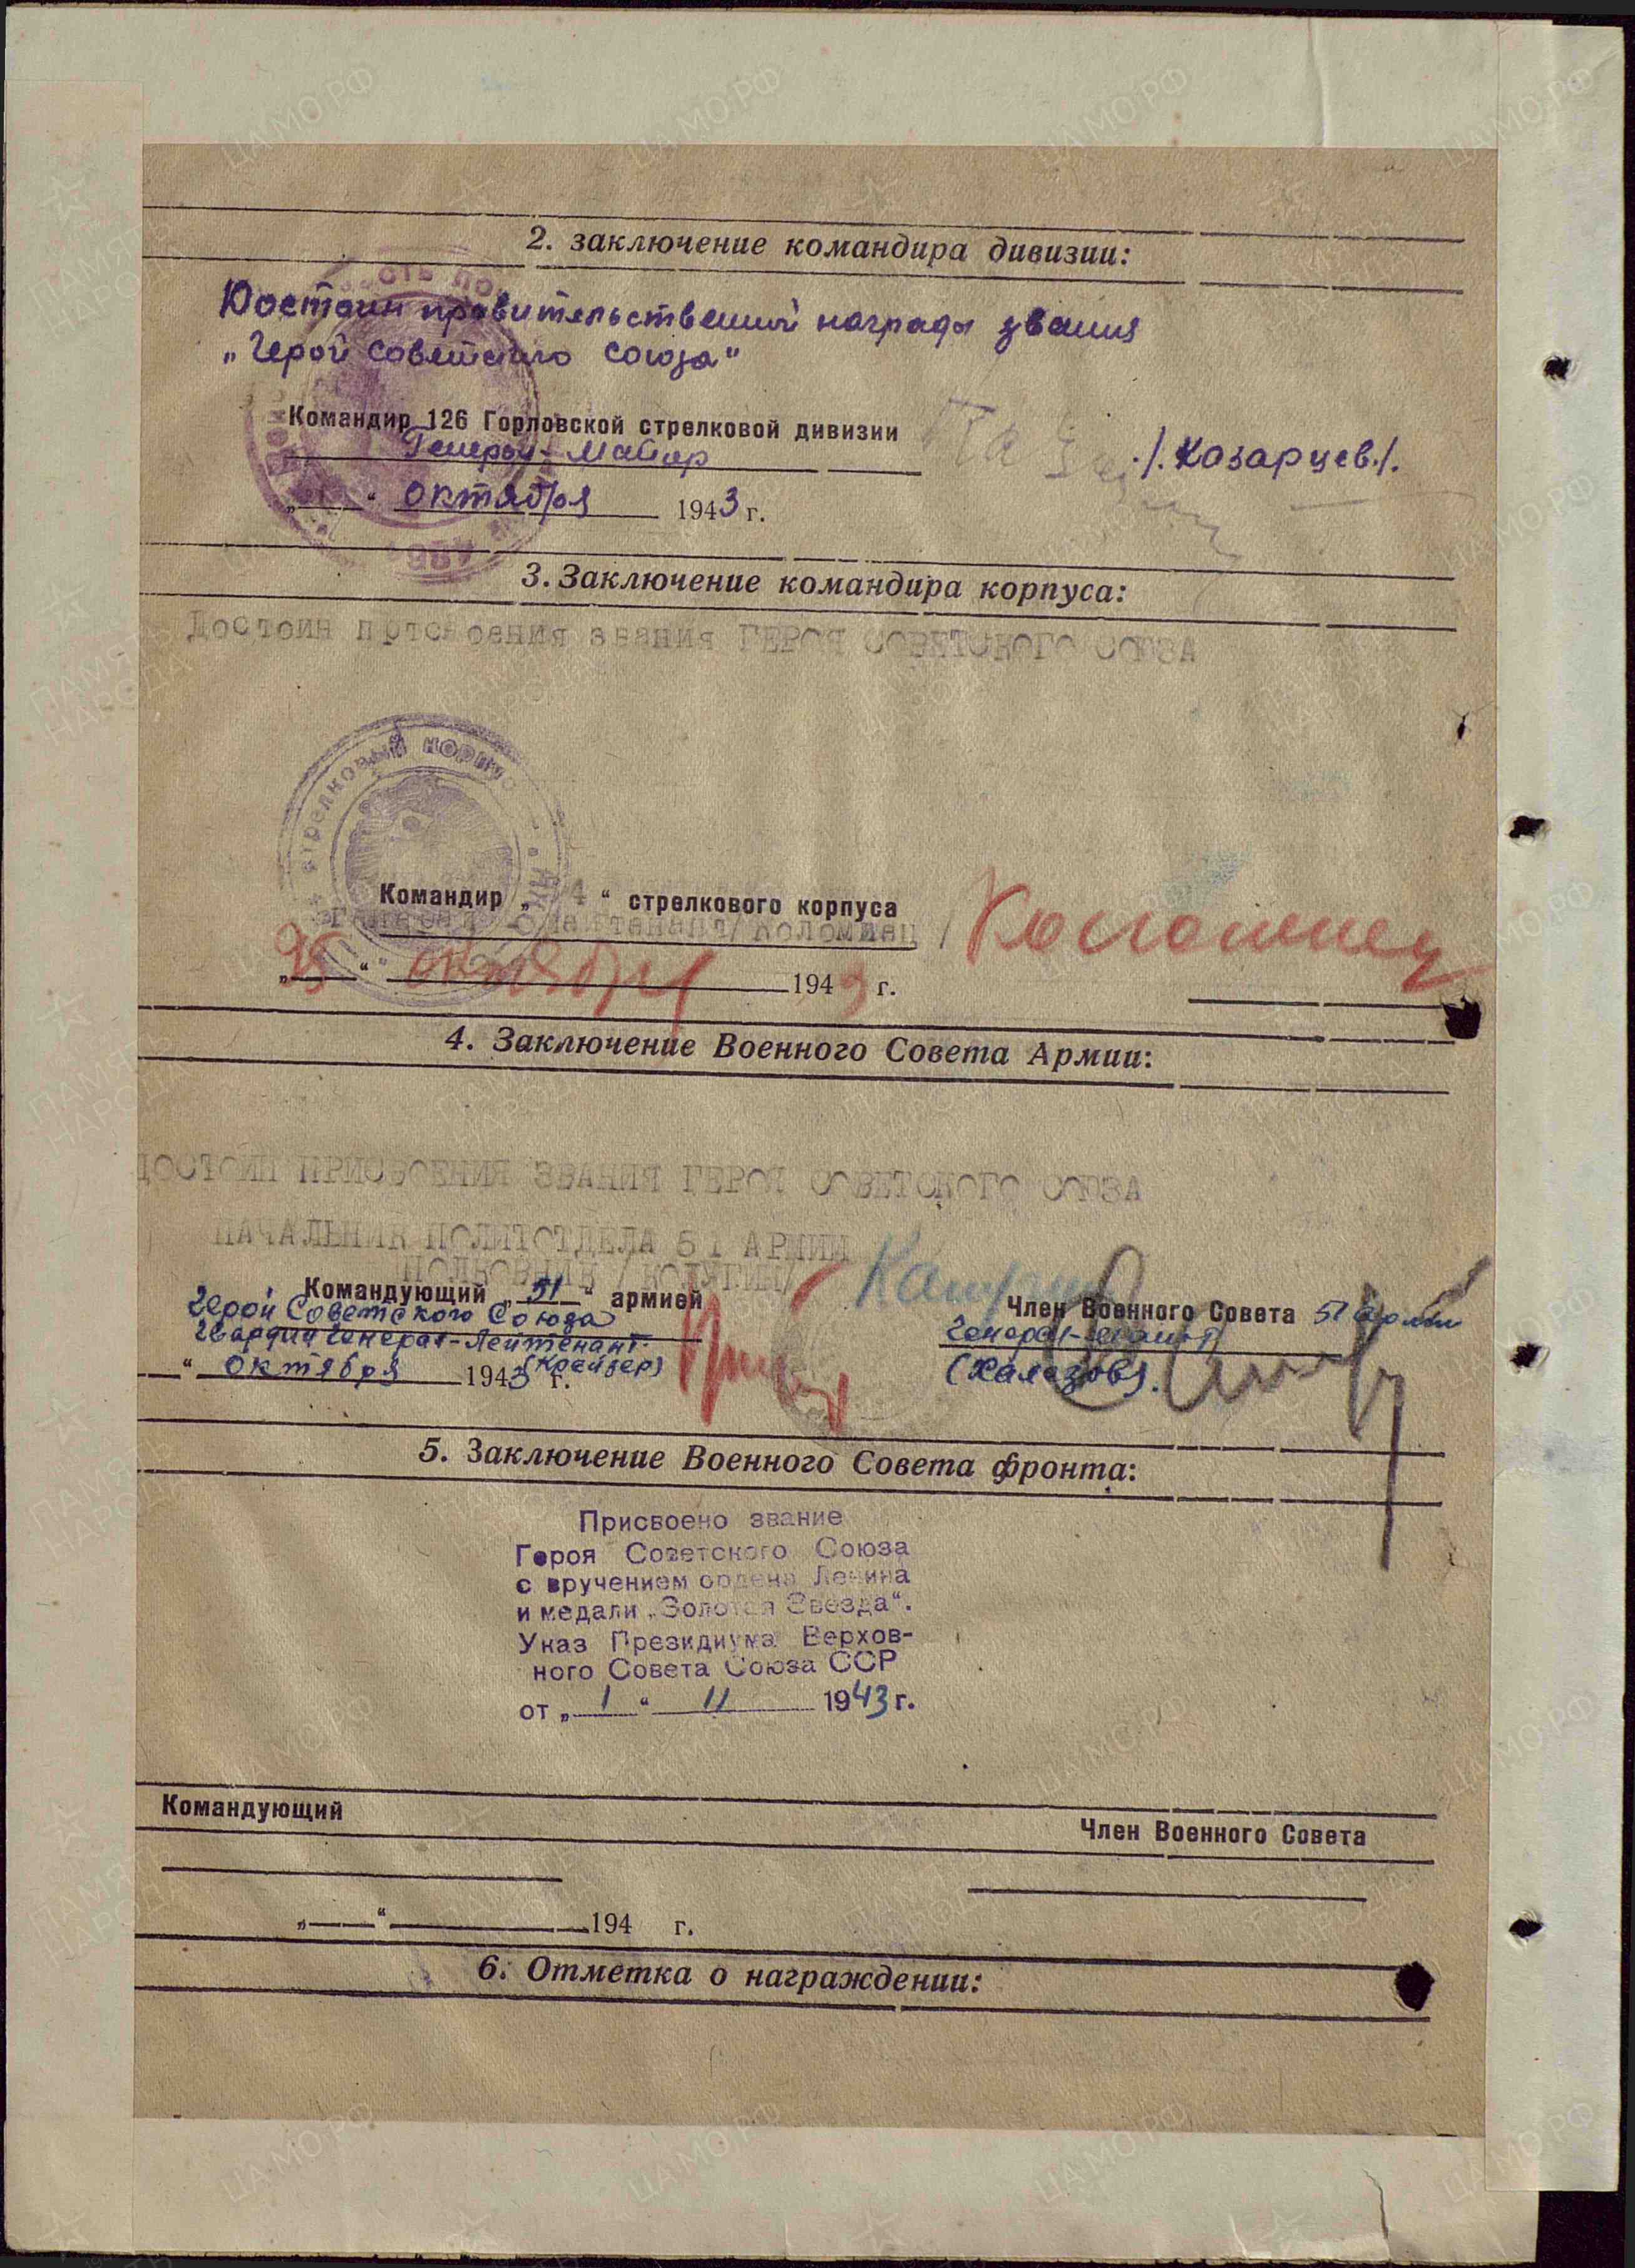 2. заключение командира дивизии:
Достоин правительственной награды звания
„Герой Советского Союза"
Командир 126 Горловской стрелковой дивизии
Генерал-Майор ./.Казарцев./.
„ “ октября 1943 г.
3. Заключение командира корпуса:
Достоин присвоения звания ГЕРОЯ СОВЕТСКОГО СОЮЗА
стрелковый корпус
Командир „ 4 “ стрелкового корпуса
Генерал лейтенант/Коломиец/ Коломиец
„25“ октября 1943 г.
4. Заключение Военного Совета Армии:
ДОСТОИН ПРИСВОЕНИЯ ЗВАНИЯ ГЕРОЯ СОВЕТСКОГО СОЮЗА
НАЧАЛЬНИК ПОЛИТОТДЕЛА 51 АРМИИ
ПОЛКОВНИК
Командующий „51“ армией
Герой Советского Союза
Гвардии Генерал-Лейтенант
(Крейзер)
“ октября 1943 г.
Член Военного Совета 51 армии
Генерал-майор
(Халезов).
5. Заключение Военного Совета фронта:
Присвоено звание
Героя Советского Союза
с вручением ордена Ленина
и медали „Золотая Звезда“.
Указ Президиума Верхов-
ного Совета Союза ССР
от „ 1 “ 11 1943 г.
Командующий
Член Военного Совета
„ “ 194 г.
6. Отметка о награждении:
ЦАМО.РФ
ПАМЯТЬ НАРОДА